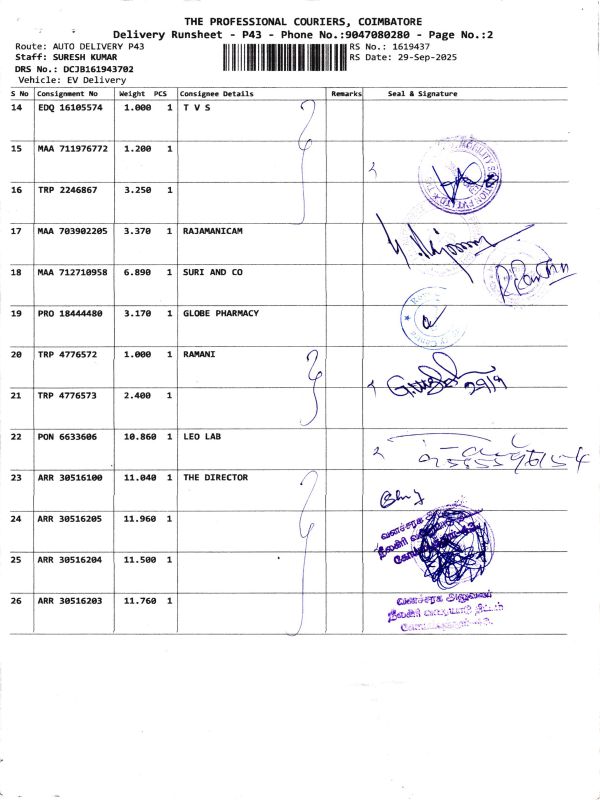 THE PROFESSIONAL COURIERS, COIMBATORE
Delivery Runsheet - P43 - Phone No.:9047080280 - Page No.:2
Route: AUTO DELIVERY P43 RS No.: 1619437
Staff: SURESH KUMAR RS Date: 29-Sep-2025
DRS No.: DCJB161943702
Vehicle: EV Delivery
S No Consignment No Weight PCS Consignee Details Remarks Seal & Signature
14 EDQ 16105574 1.000 1 T V S
15 MAA 711976772 1.200 1
16 TRP 2246867 3.250 1
17 MAA 703902205 3.370 1 RAJAMANICAM
18 MAA 712710958 6.890 1 SURI AND CO
19 PRO 18444480 3.170 1 GLOBE PHARMACY
20 TRP 4776572 1.000 1 RAMANI
29/9
21 TRP 4776573 2.400 1
22 PON 6633606 10.860 1 LEO LAB
23 ARR 30516100 11.040 1 THE DIRECTOR
24 ARR 30516205 11.960 1
25 ARR 30516204 11.500 1
26 ARR 30516203 11.760 1